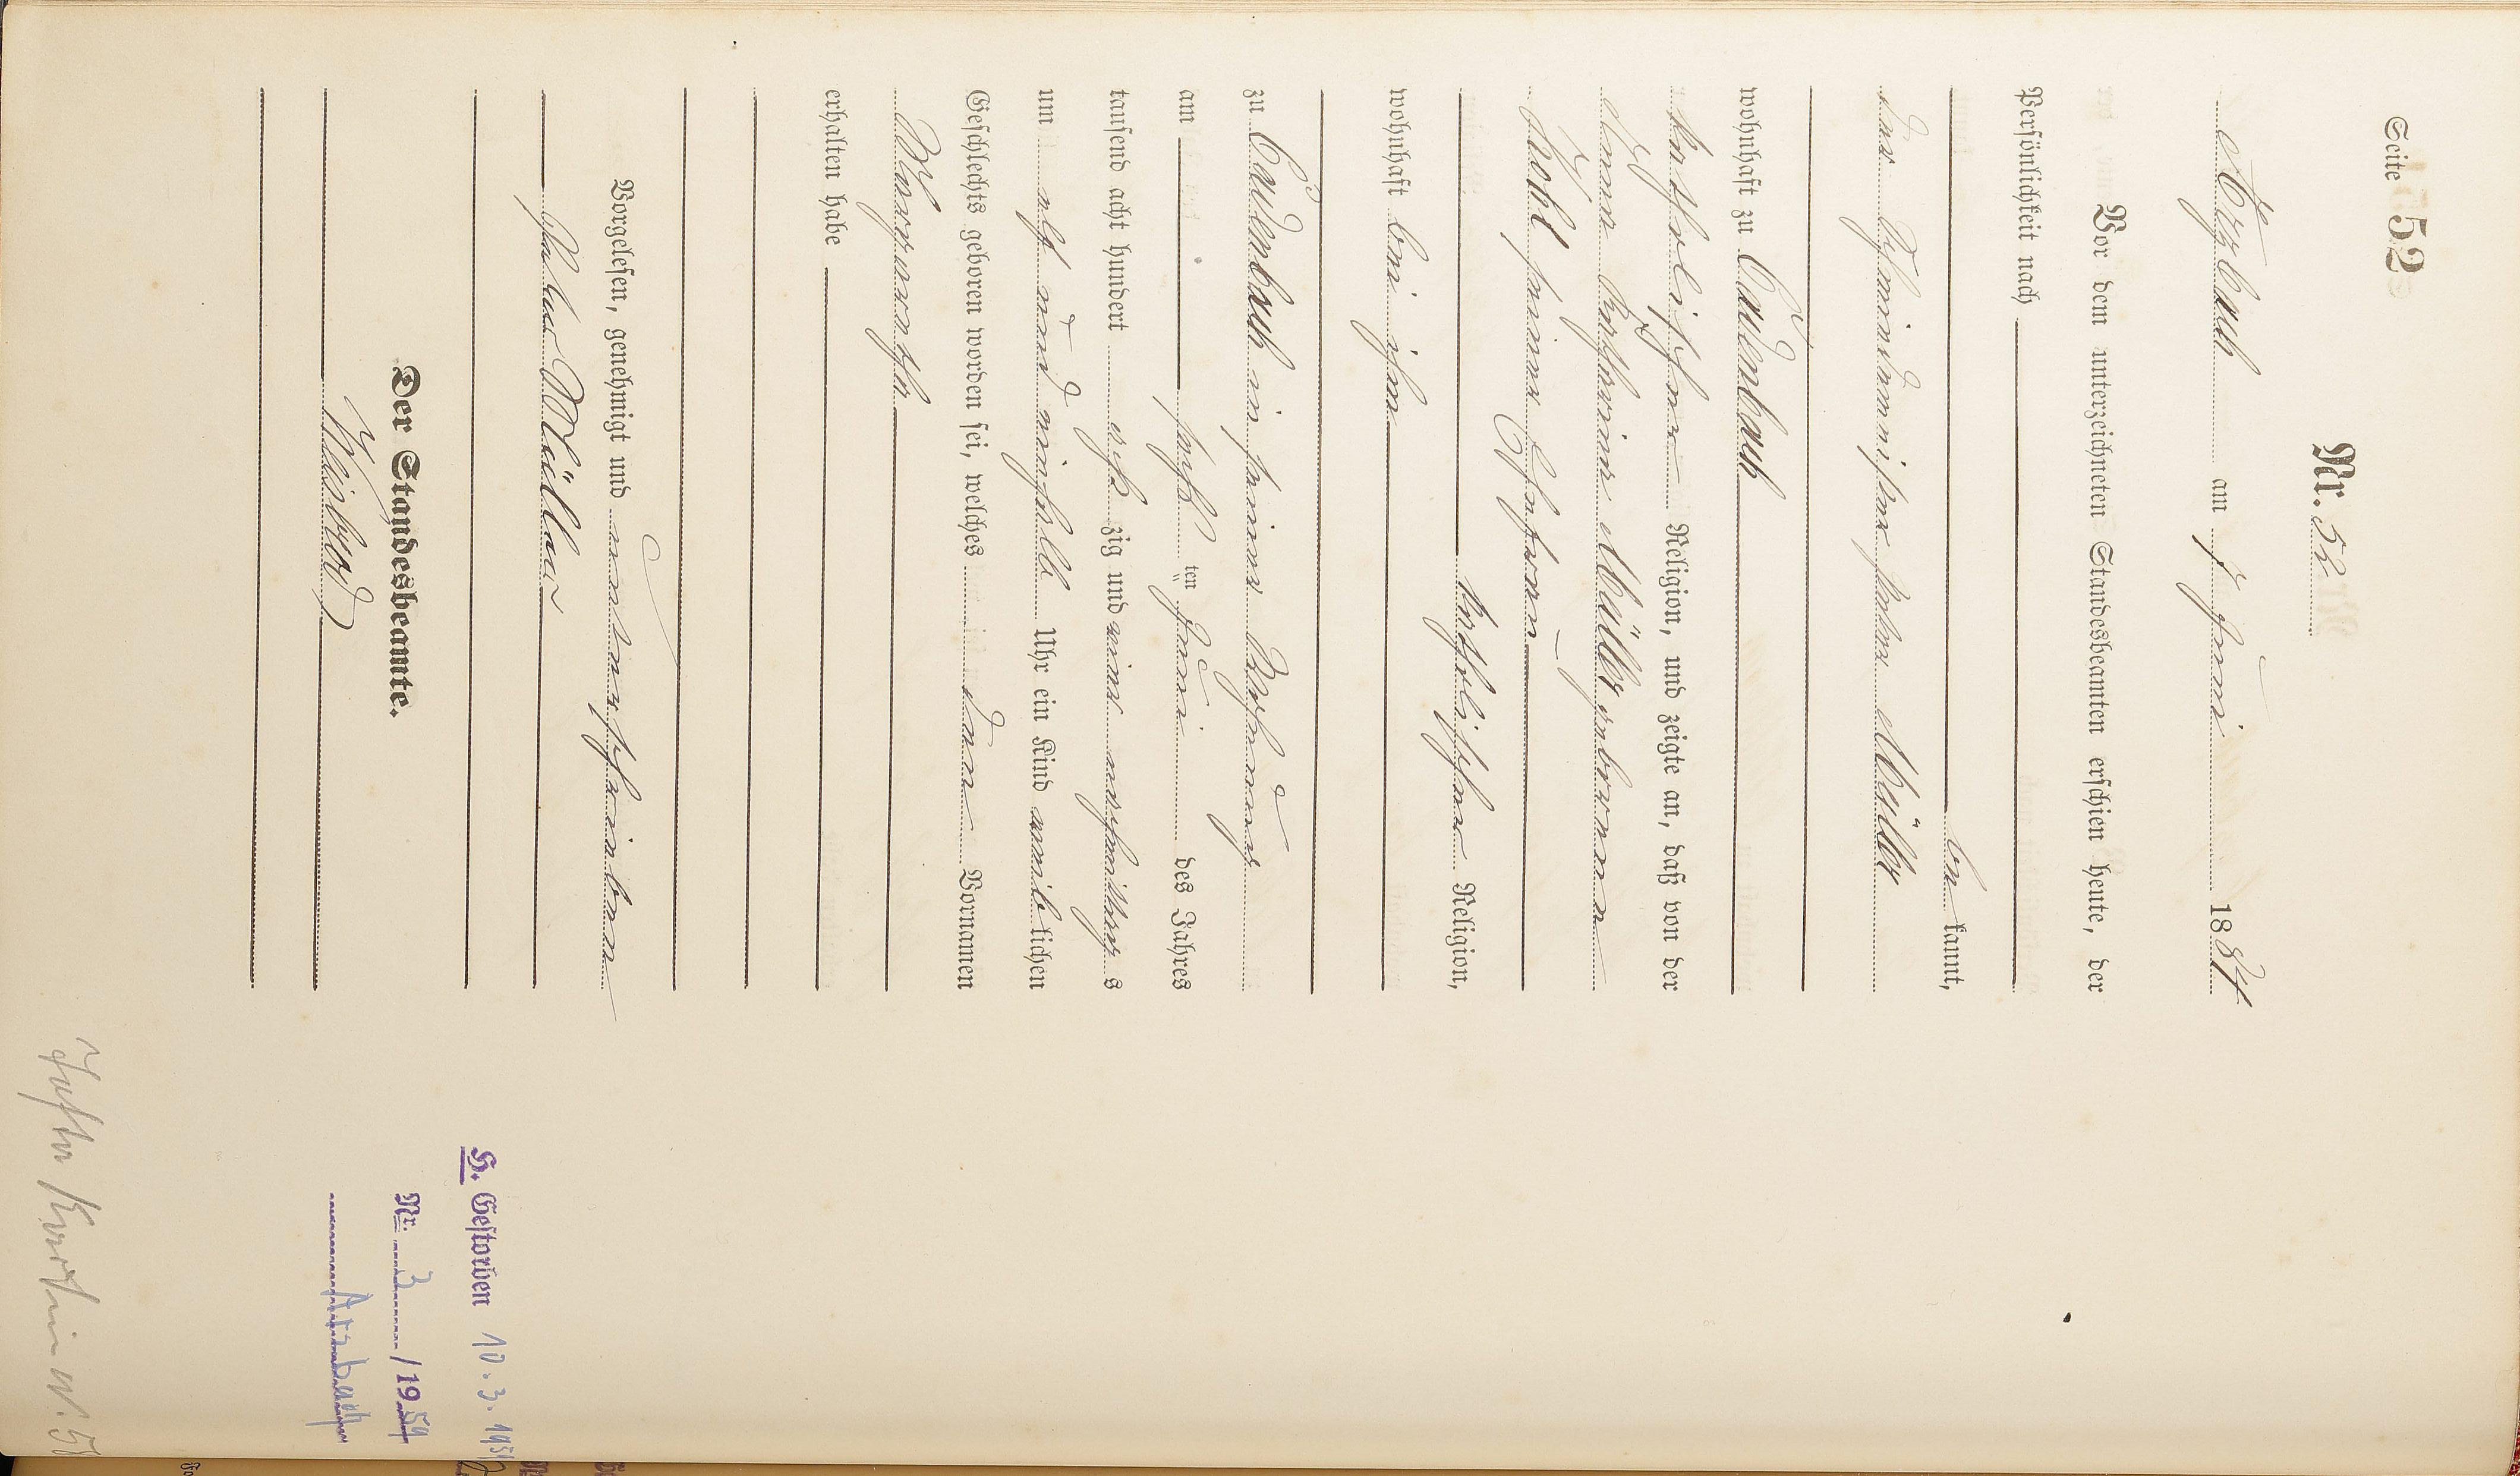 Seite 52
Nr. 52
Arzbach am 7 Juni 1884
Vor dem unterzeichneten Standesbeamten erschien heute, der
Persönlichkeit nach
be kannt,
der Peter Müller
wohnhaft zu Cadenbach
katholischer Religion, und zeigte an, daß von der
Anna Katharina Müller geborenen
seiner Ehefrau
katholischer Religion,
wohnhaft bei ihm
zu Cadenbach in seiner Wohnung
am Juni des Jahres
tausend acht hundert acht zig und vier nachmittags
um elf und einhalb Uhr ein Kind weiblichen
Geschlechts geboren worden sei, welches den Vornamen
Margaretha
erhalten habe
Vorgelesen, genehmigt und unterschrieben
Müller
Der Standesbeamte.
H. Gestorben 10.3.195
Nr. 3 /1959
Arzbach